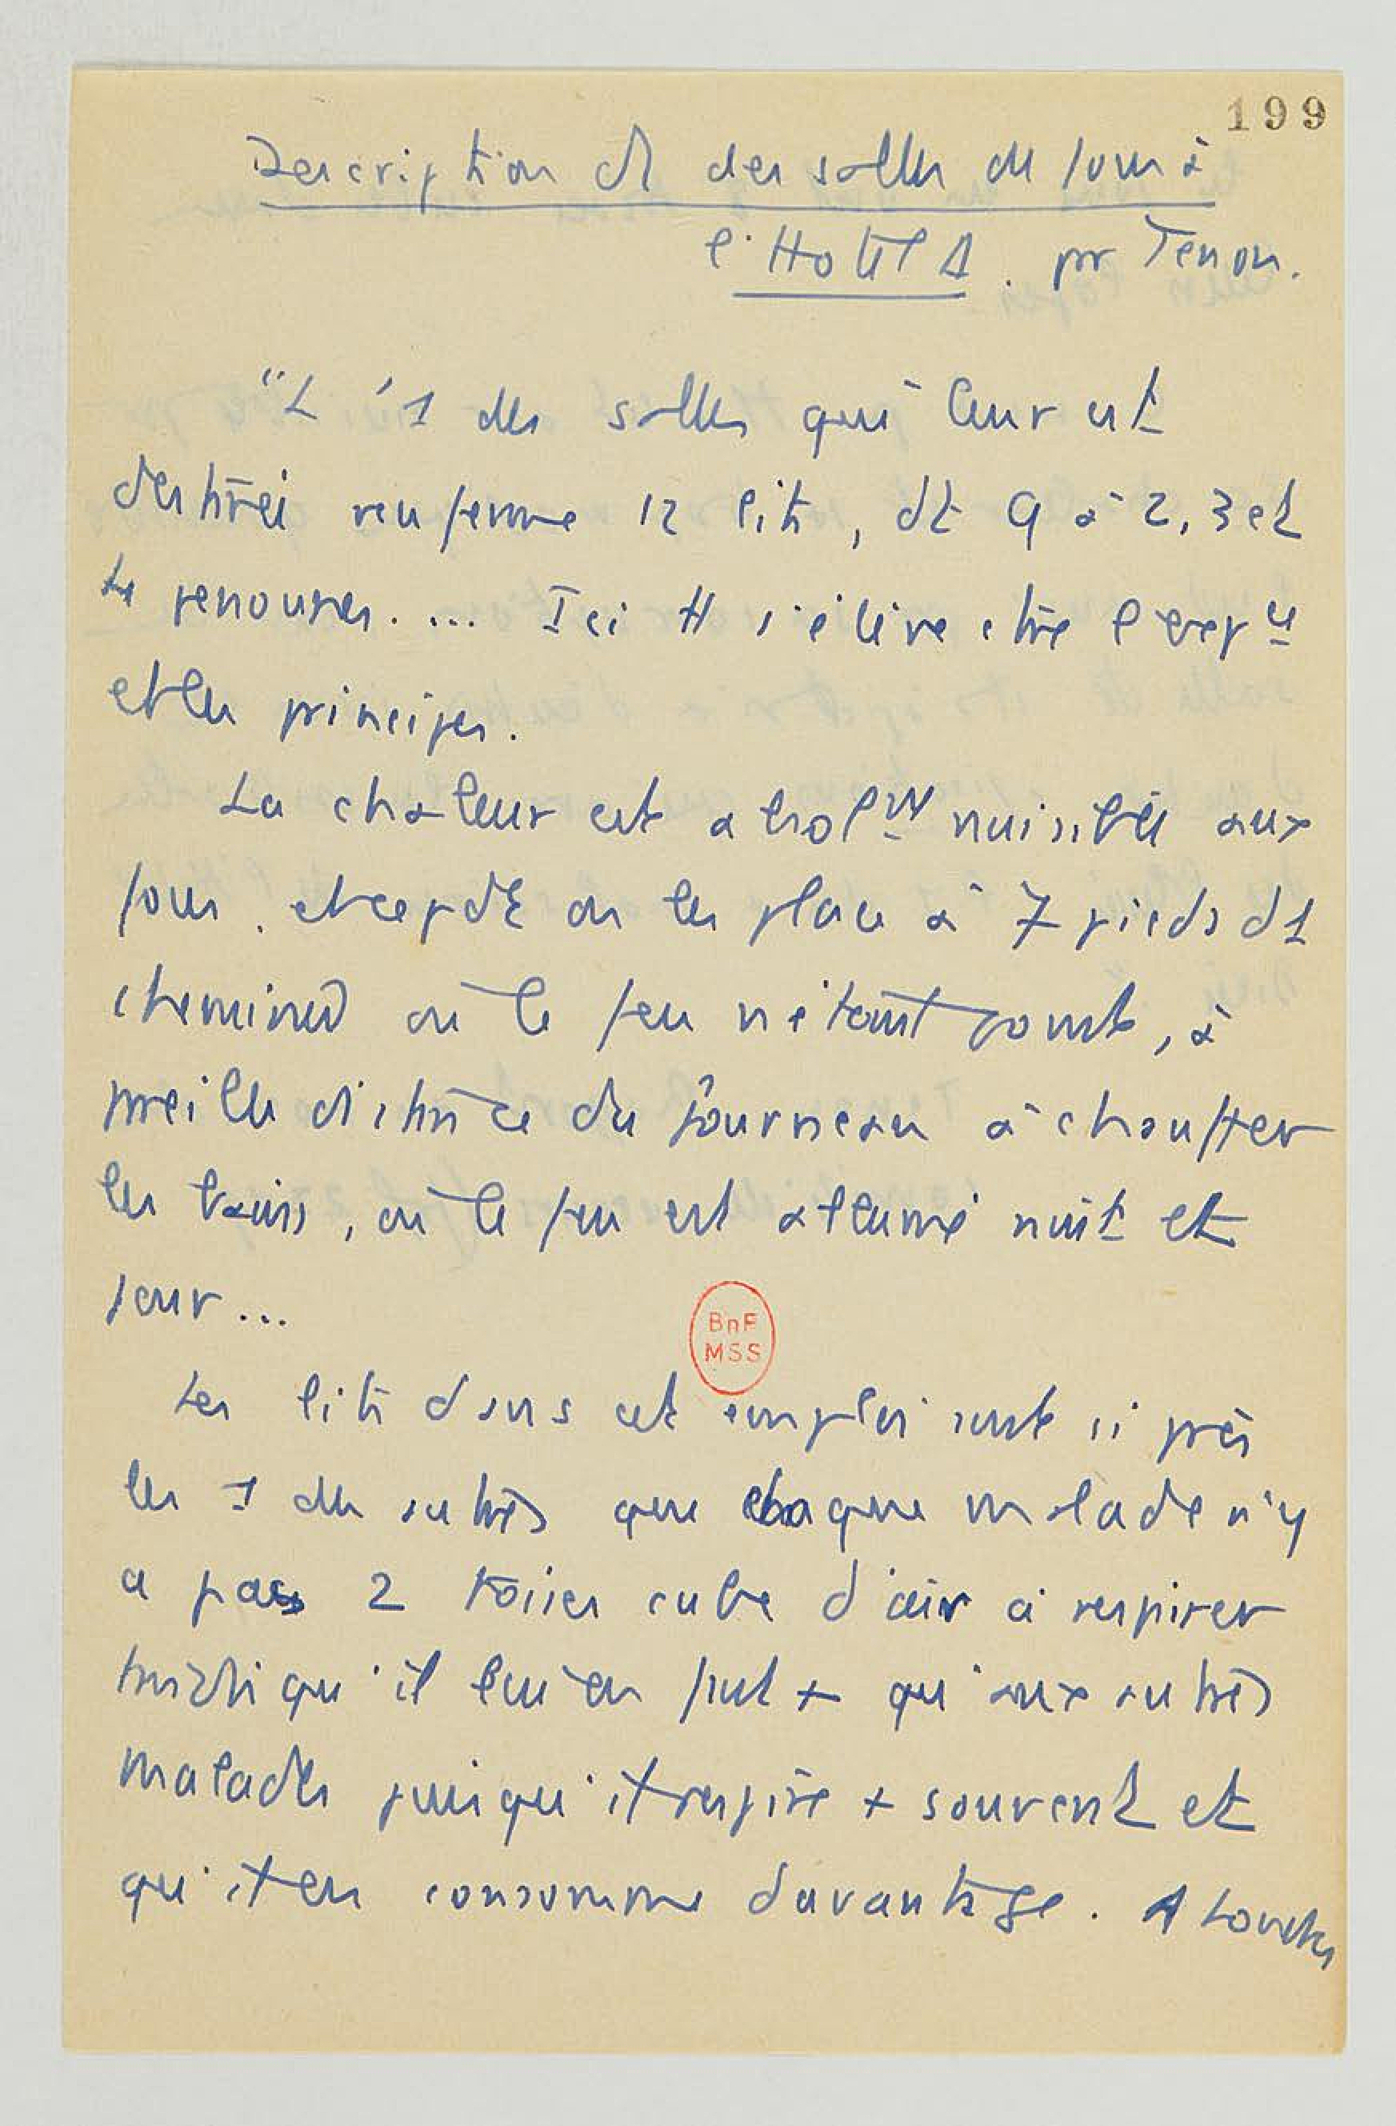 199
Description d des salles de fous à
l'Hôtel Δ. pr Tenon.
"L'1 des salles qui leur est
destinée renferme 12 lits, dt 9 à 2, 3 et
4 personnes.... Ici tt s'élève contre l'expce
et les principes.
La chaleur est absolmt nuisible aux
fous. et cepdt on les place à 7 pieds d1
cheminée où le feu n'éteint point, à
pareille distance du fourneau à chauffer
les bains, où le feu est allumé nuit et
jour...
BnF
MSS
Les lits dans cet emploi sont si près
les 1 des autres que chaque malade n'y
a pas 2 toises cube d'air à respirer
tandis qu'il lui en faut + qu'aux autres
malades puisqu'il respire + souvent et
qu'il en consomme davantage. A toutes